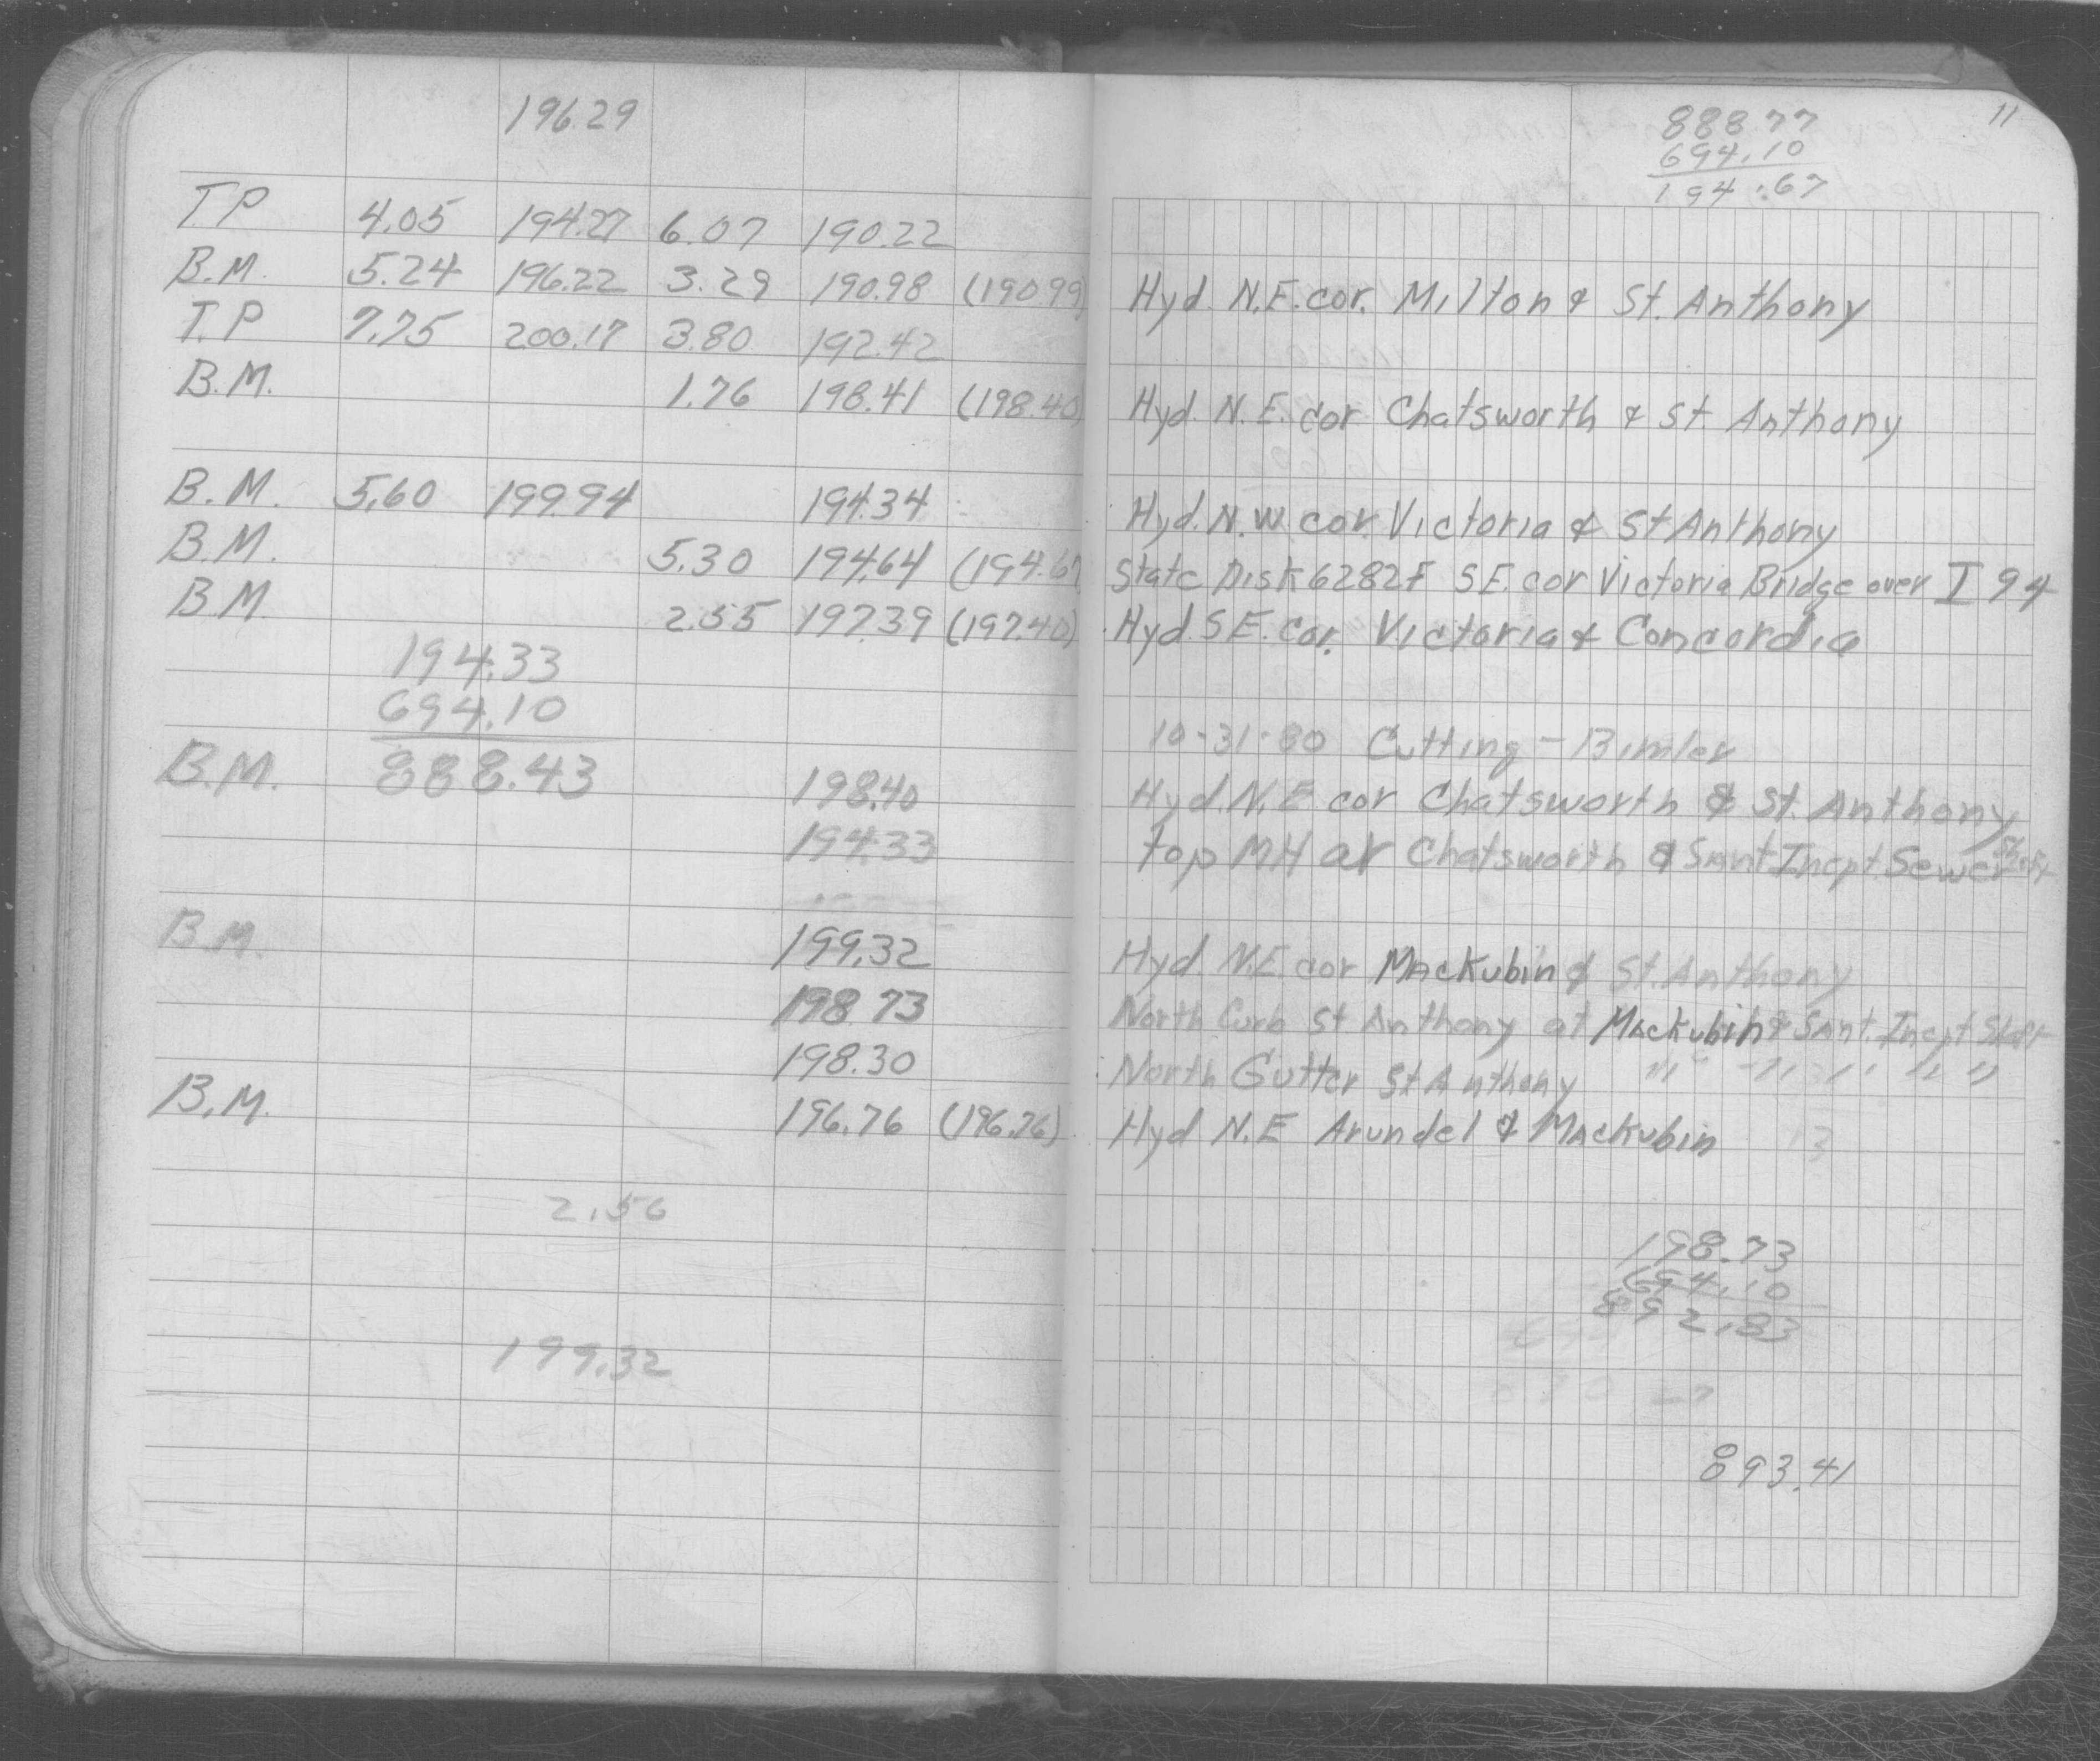 196.29
T P 4.05 194.27 6.07 190.22
B.M. 5.24 196.22 3.29 190.98 (190.99)
T.P 7.75 200.17 3.80 192.42
B.M. 1.76 198.41 (198.40)
B.M. 5.60 199.94 194.34
B.M. 5.30 194.64 (194.67
B.M. 2.55 197.39 (197.40)
194.33
694.10
888.43
B.M. 198.40
194.33
B.M. 199.32
198.73
198.30
B.M. 196.76 (196.76)
2.56
199.32
11
888.77
694.10
194.67
Hyd. N.E. cor. Milton & St. Anthony
Hyd. N.E. cor Chatsworth & St. Anthony
Hyd. N.W. cor. Victoria & St Anthony
State Disk 6282F S.E. cor Victoria Bridge over I 94
Hyd. S.E. Cor. Victoria & Concordia
10-31-80 Cutting - Bimler
Hyd. N.E cor Chatsworth & St. Anthony
Top MH at Chatsworth & Sanit. Incpt. Sewer
Hyd. N.E. cor Mackubin & St. Anthony
North Curb St Anthony at Mackubin & Sanit. Incpt Shaft
North Gutter St Anthony " " " " "
Hyd N.E Arundel & Mackubin 13
198.73
694.10
892.83
893.41